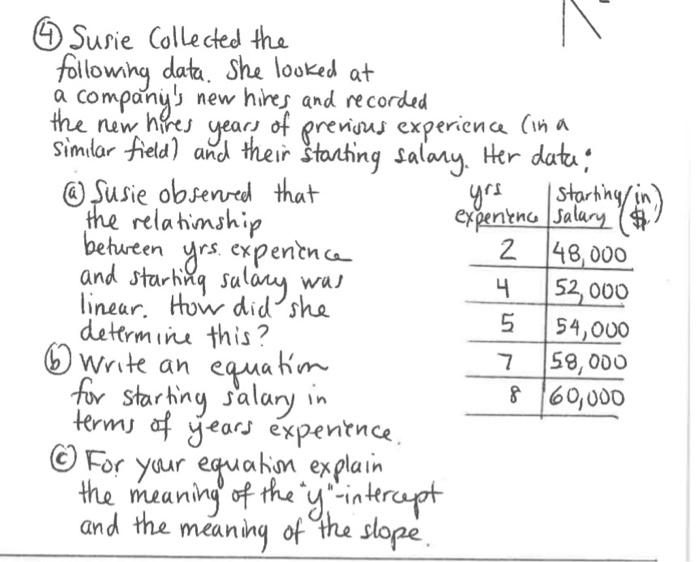 ④ Susie Collected the
following data. She looked at
a company's new hires and recorded
the new hires years of previous experience (in a
similar field) and their starting salary. Her data:
ⓐ Susie observed that
the relationship
between yrs. experience
and starting salary was
linear. How did she
determine this?
ⓑ Write an equation
for starting salary in
terms of years experience.
ⓒ For your equation explain
the meaning of the "y"-intercept
and the meaning of the slope.
yrs experience | Starting salary (in $)
2 | 48,000
4 | 52,000
5 | 54,000
7 | 58,000
8 | 60,000